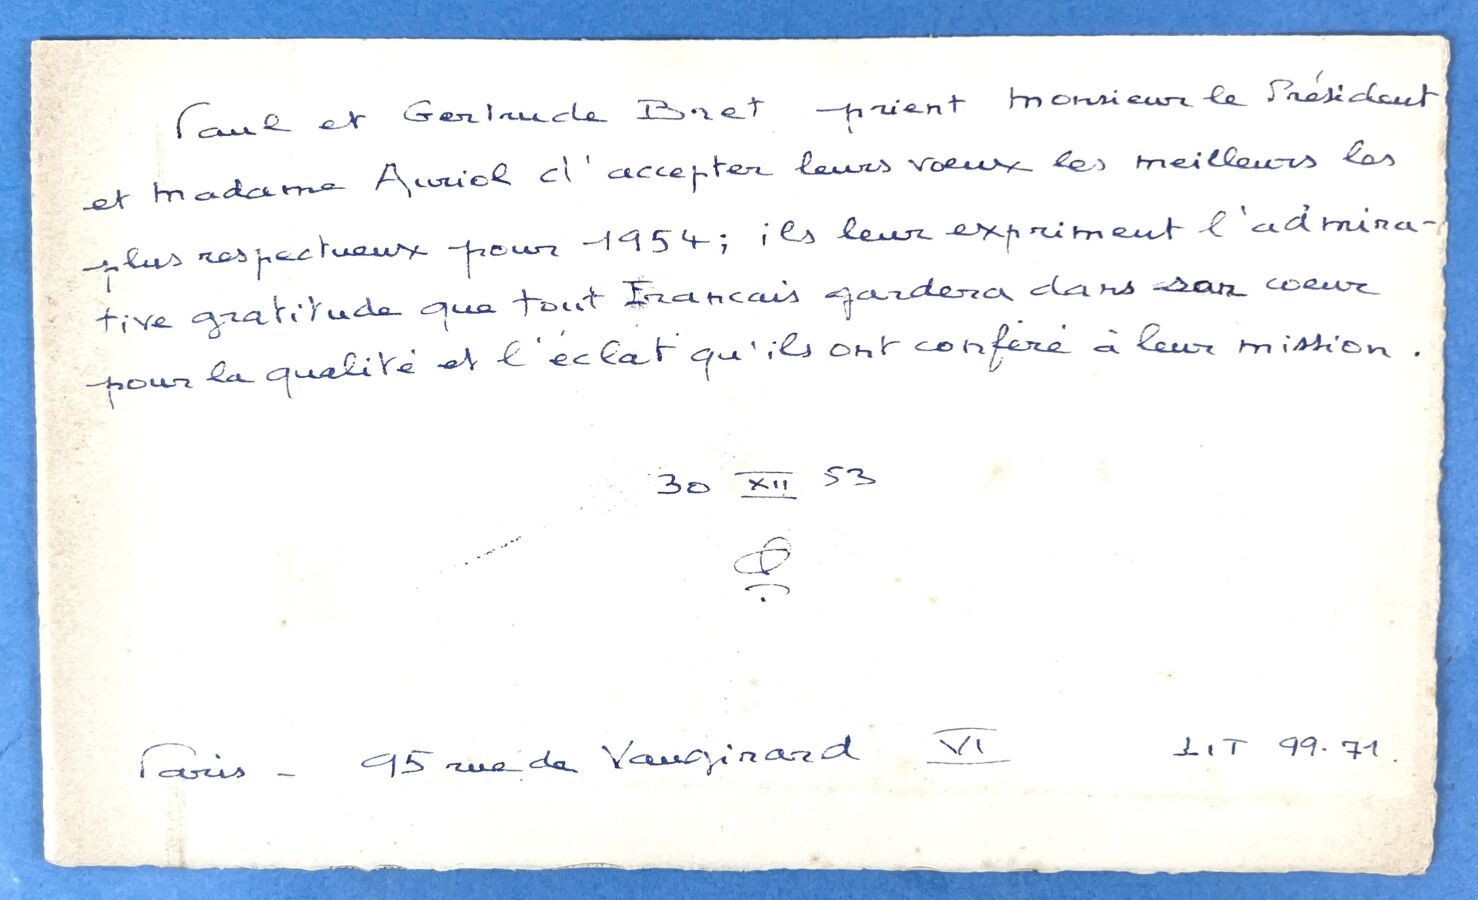 Paul et Gertrude Bret prient Monsieur le Président
et Madame Auriol d'accepter leurs vœux les meilleurs les
plus respectueux pour 1954; ils leur expriment l'admira-
tive gratitude que tout Francais gardera dans son coeur
pour la qualité et l'éclat qu'ils ont conféré à leur mission.
30 XII 53
Paris - 95 rue de Vaugirard VI LIT 99.71.